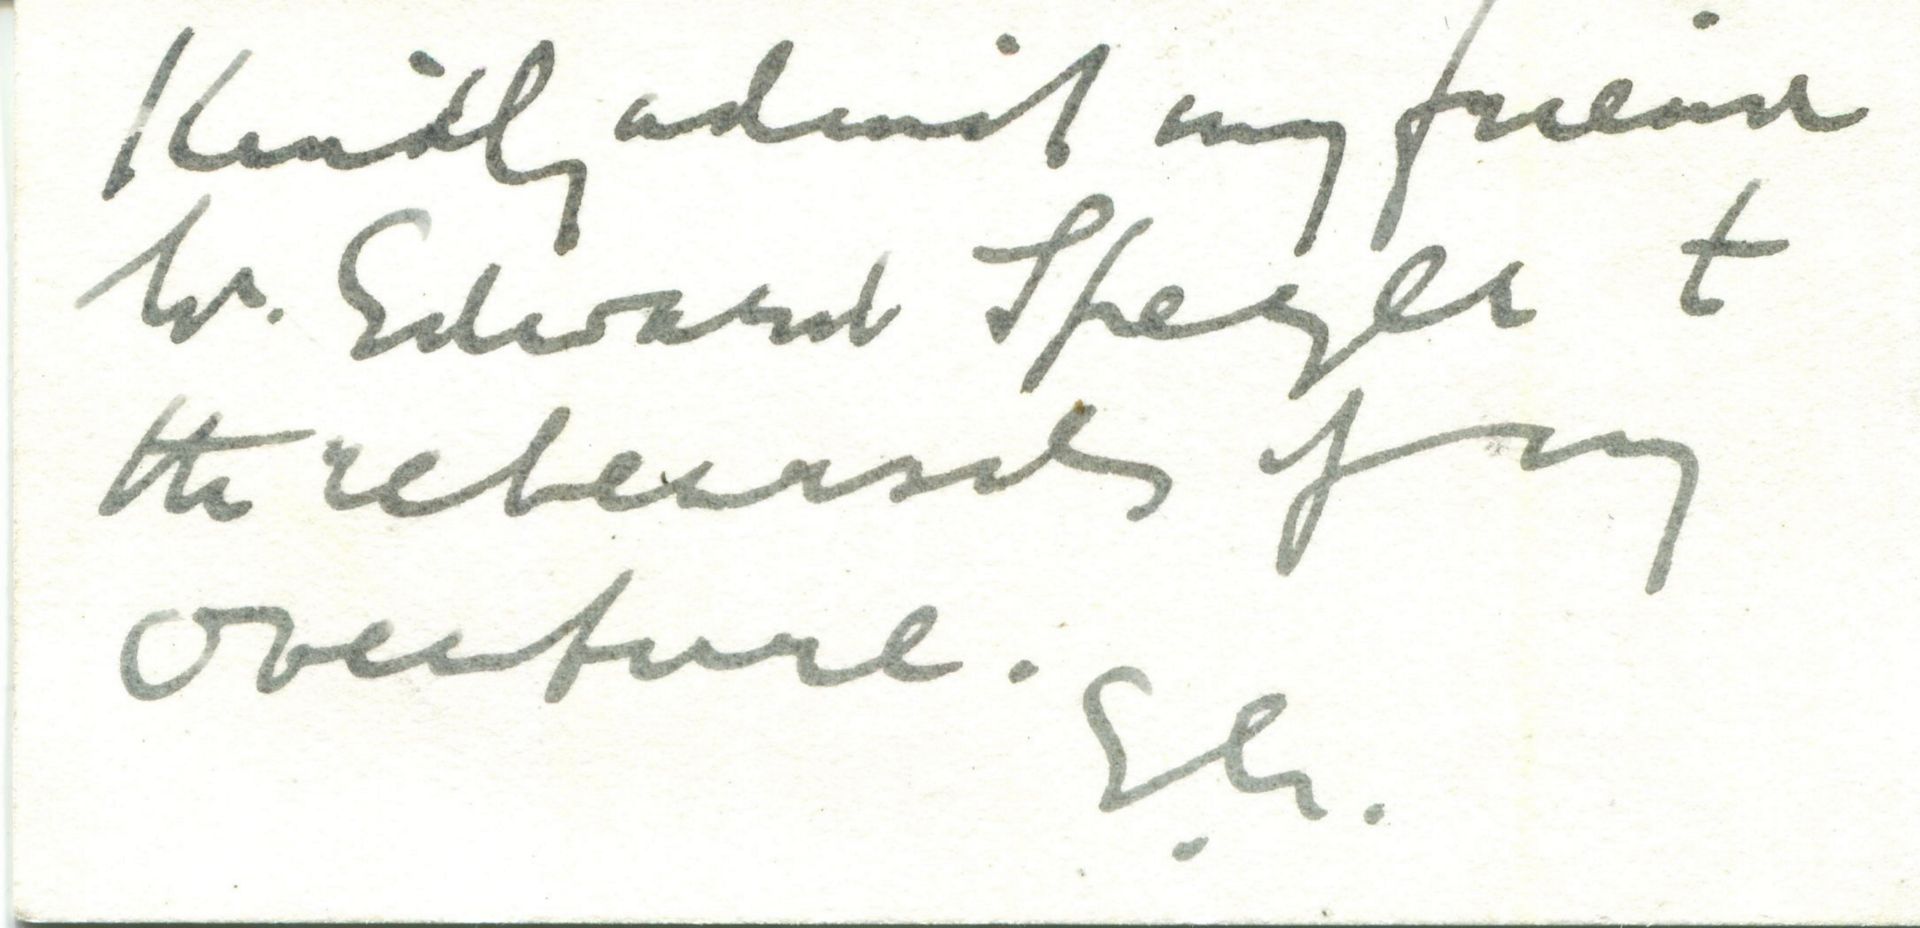 Kindly admit my friend
Mr. Edward Speyer to
the rehearsals of my
overture.
E.G.